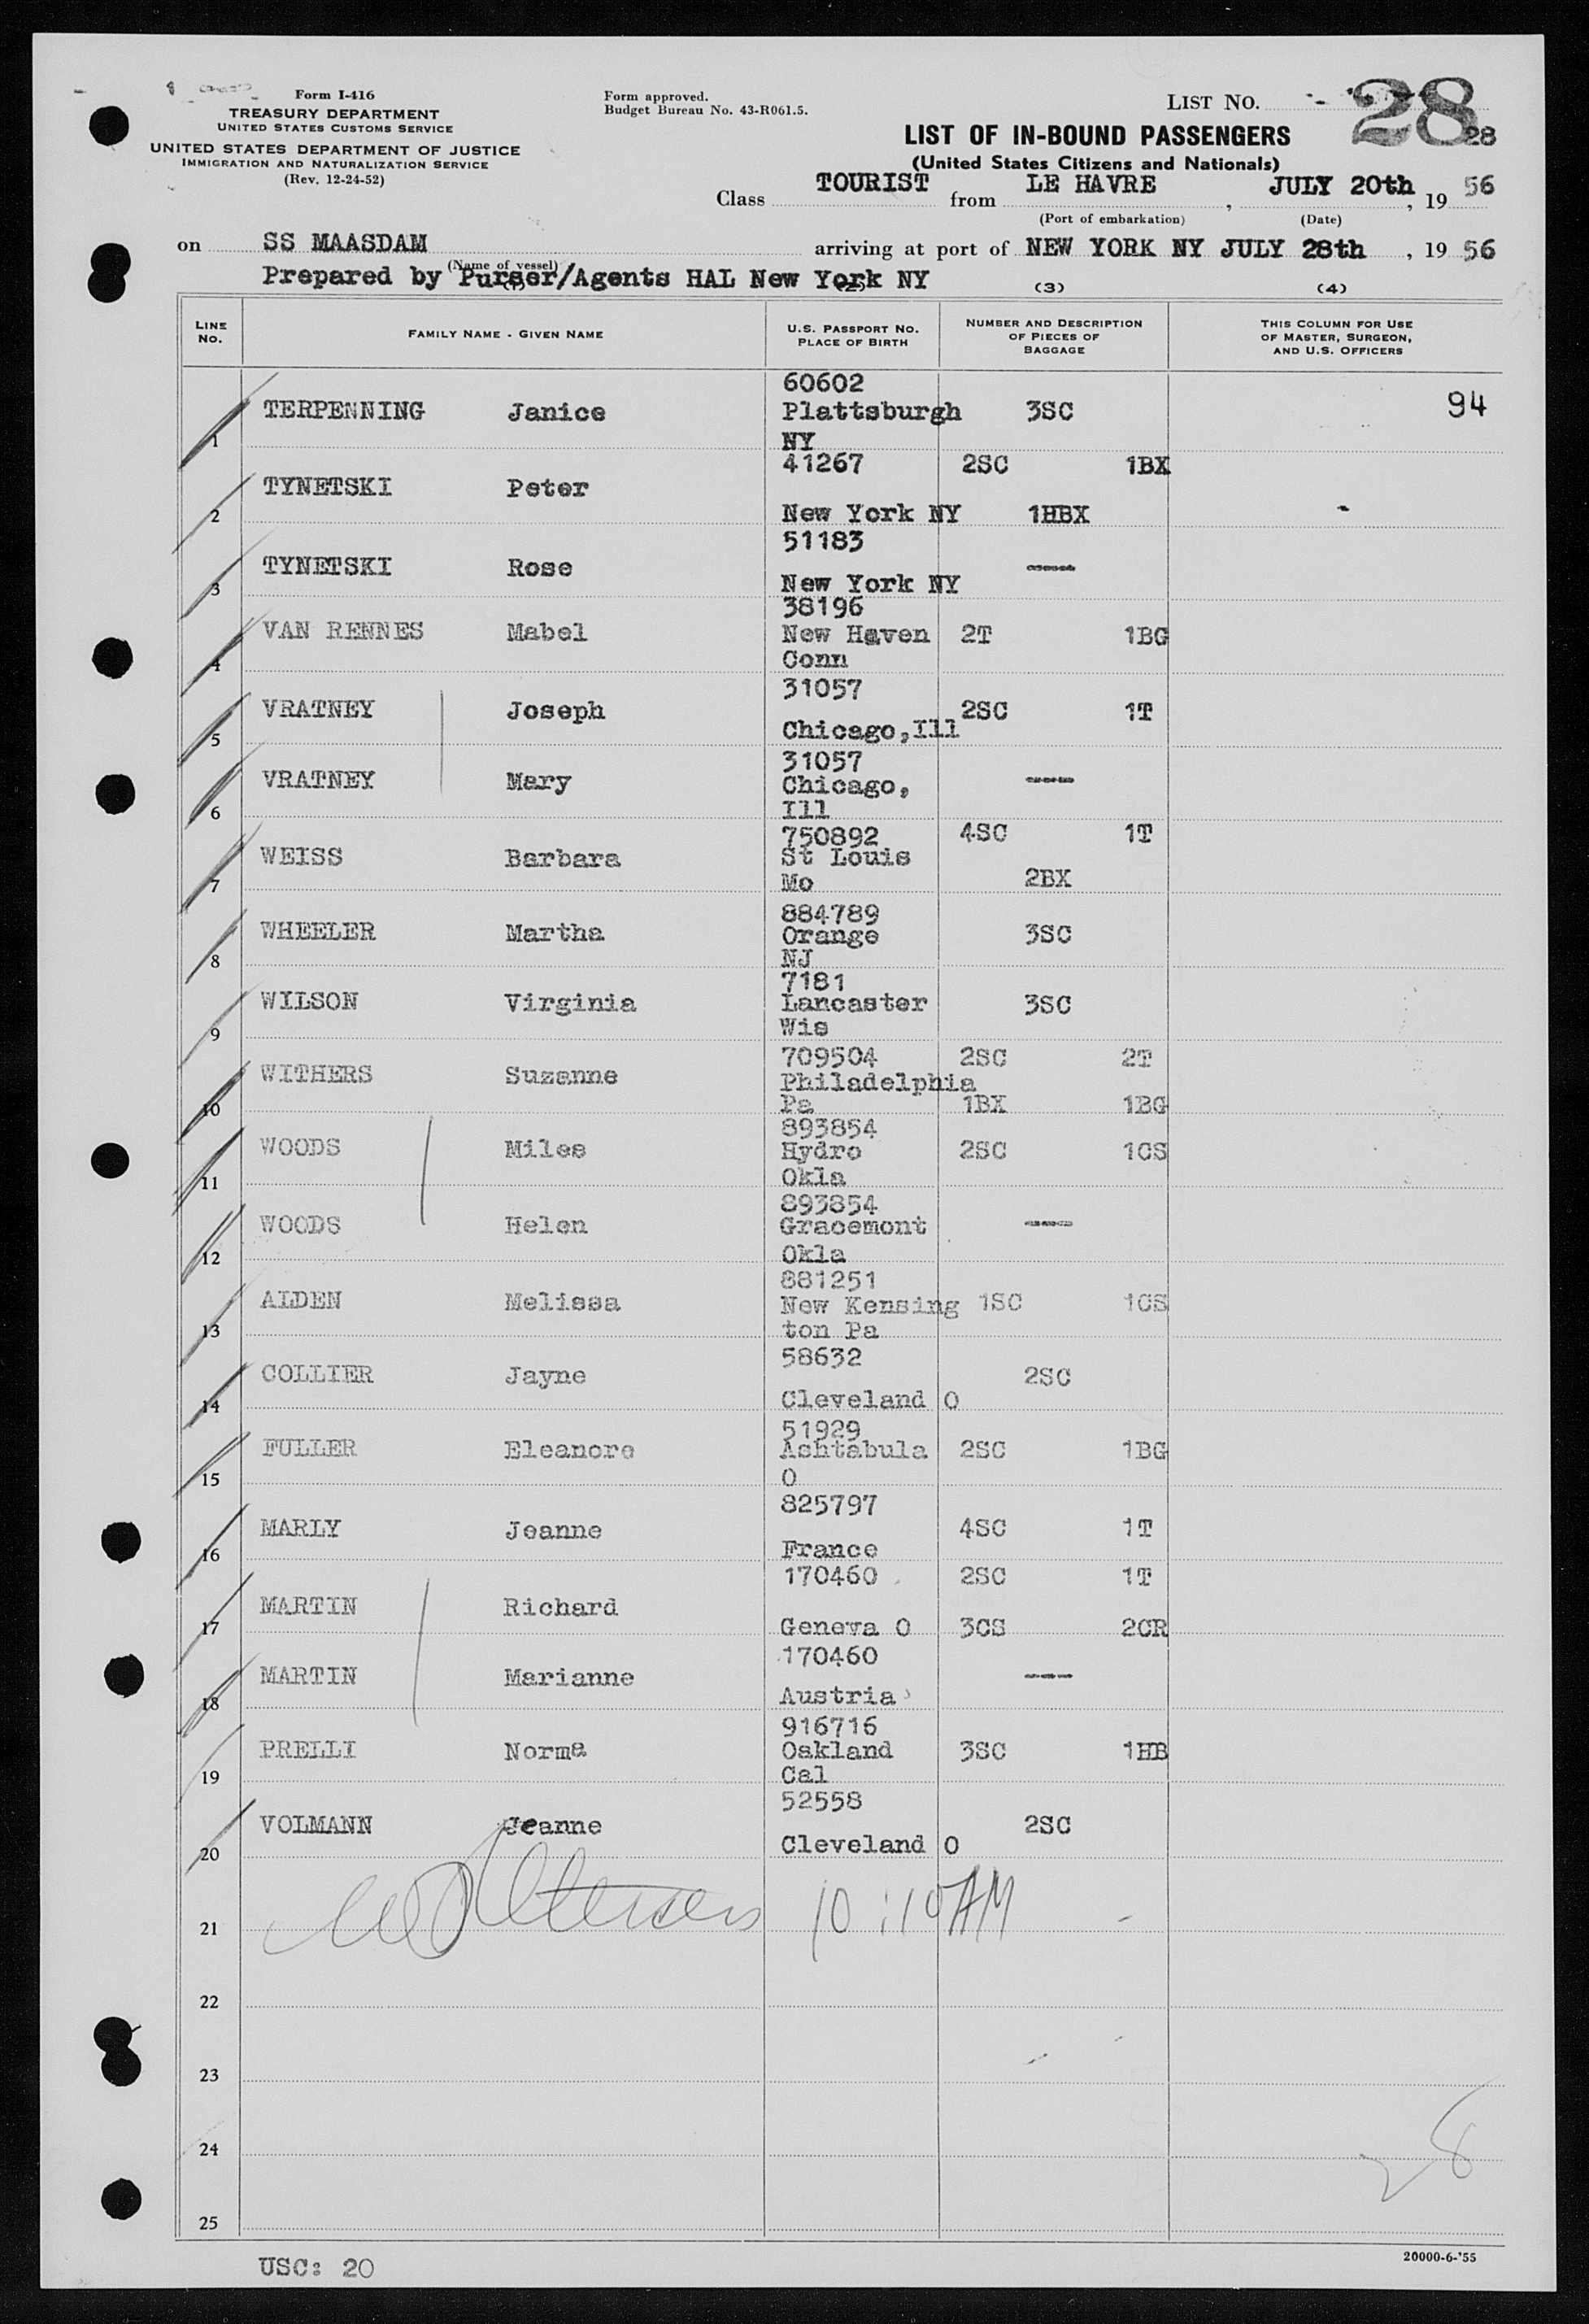 Form I-416
TREASURY DEPARTMENT
UNITED STATES CUSTOMS SERVICE
UNITED STATES DEPARTMENT OF JUSTICE
IMMIGRATION AND NATURALIZATION SERVICE
(Rev. 12-24-52)
Form approved.
Budget Bureau No. 43-R061.5.
LIST NO. 28
28
LIST OF IN-BOUND PASSENGERS
(United States Citizens and Nationals)
Class TOURIST from LE HAVRE, JULY 20th, 19 56
(Port of embarkation) (Date)
on SS MAASDAM arriving at port of NEW YORK NY JULY 28th, 19 56
(Name of vessel)
Prepared by Purser/Agents HAL New York NY
(1) (2) (3) (4)
LINE NO. FAMILY NAME - GIVEN NAME U.S. PASSPORT NO. PLACE OF BIRTH NUMBER AND DESCRIPTION OF PIECES OF BAGGAGE THIS COLUMN FOR USE OF MASTER, SURGEON, AND U.S. OFFICERS
1 TERPENNING Janice 60602 Plattsburgh NY 3SC 94
2 TYNETSKI Peter 41267 New York NY 2SC 1BX 1HBX
3 TYNETSKI Rose 51183 New York NY ----
4 VAN RENNES Mabel 38196 New Haven Conn 2T 1BG
5 VRATNEY Joseph 31057 Chicago,Ill 2SC 1T
6 VRATNEY Mary 31057 Chicago, Ill ----
7 WEISS Barbara 750892 St Louis Mo 4SC 1T 2BX
8 WHEELER Martha 884789 Orange NJ 3SC
9 WILSON Virginia 7181 Lancaster Wis 3SC
10 WITHERS Suzanne 709504 Philadelphia Pa 2SC 2T 1BX 1BG
11 WOODS Miles 893854 Hydro Okla 2SC 1CS
12 WOODS Helen 893854 Gracemont Okla ----
13 ALDEN Melissa 881251 New Kensing ton Pa 1SC 1CS
14 COLLIER Jayne 58632 Cleveland O 2SC
15 FULLER Eleanore 51929 Ashtabula O 2SC 1BG
16 MARLY Jeanne 825797 France 4SC 1T
17 MARTIN Richard 170460 Geneva O 2SC 1T 3CS 2CR
18 MARTIN Marianne 170460 Austria ----
19 PRELLI Norma 916716 Oakland Cal 3SC 1HB
20 VOLMANN Jeanne 52558 Cleveland O 2SC
21 10:10 AM
22
23
24
28
25
USC: 20
20000-6-'55